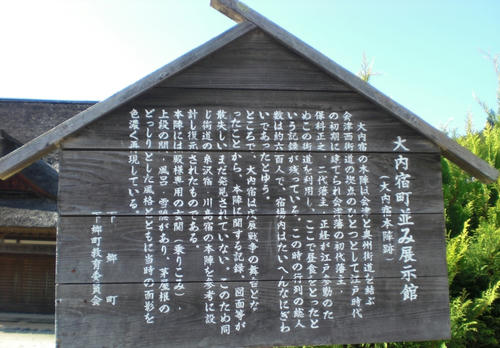 大内宿町並み展示館
(大内宿本陣跡)
大内宿の本陣は会津と奥州街道を結ぶ
会津西街道の拠点のひとつとして江戸時代
の初期に建てられ会津藩の初代藩主、
保科正之、二代藩主、正経が江戸参勤のた
めこの街道を利用し、ここで昼食をとったと
いう記録が残っている。この時の行列の総人
数は約六百人で、宿場内はたいへんなにぎわ
いであったでしょう。
ところで、大内宿は戊辰戦争の舞台とな
ったことから、本陣に関する記録、図面等が
散失しいまだ発見されていない。このため同
じ街道の糸沢宿、川島宿の本陣を参考に設
計し復元されたものである。
本陣には殿様専用の玄関(乗りこみ)、
上段の間、風呂、雪隠があり、茅屋根の
どっしりとした風格とともに当時の面影を
色濃く再現している。
下郷町
下郷町教育委員会